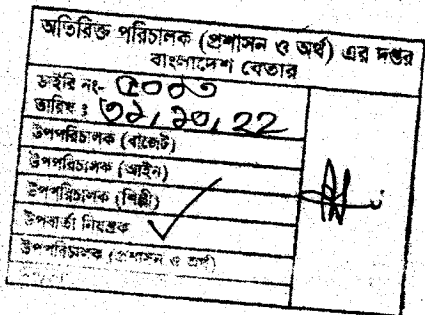 অতিরিক্ত পরিচালক (প্রশাসন ও অর্থ) এর দপ্তর
বাংলাদেশ বেতার
ডাইরি নং-
তারিখ :
উপপরিচালক (বাজেট)
উপপরিচালক (আইন)
উপপরিচালক (শিল্পী)
উপবার্তা নিয়ন্ত্রক
উপপরিচালক (প্রশাসন ও অর্থ)